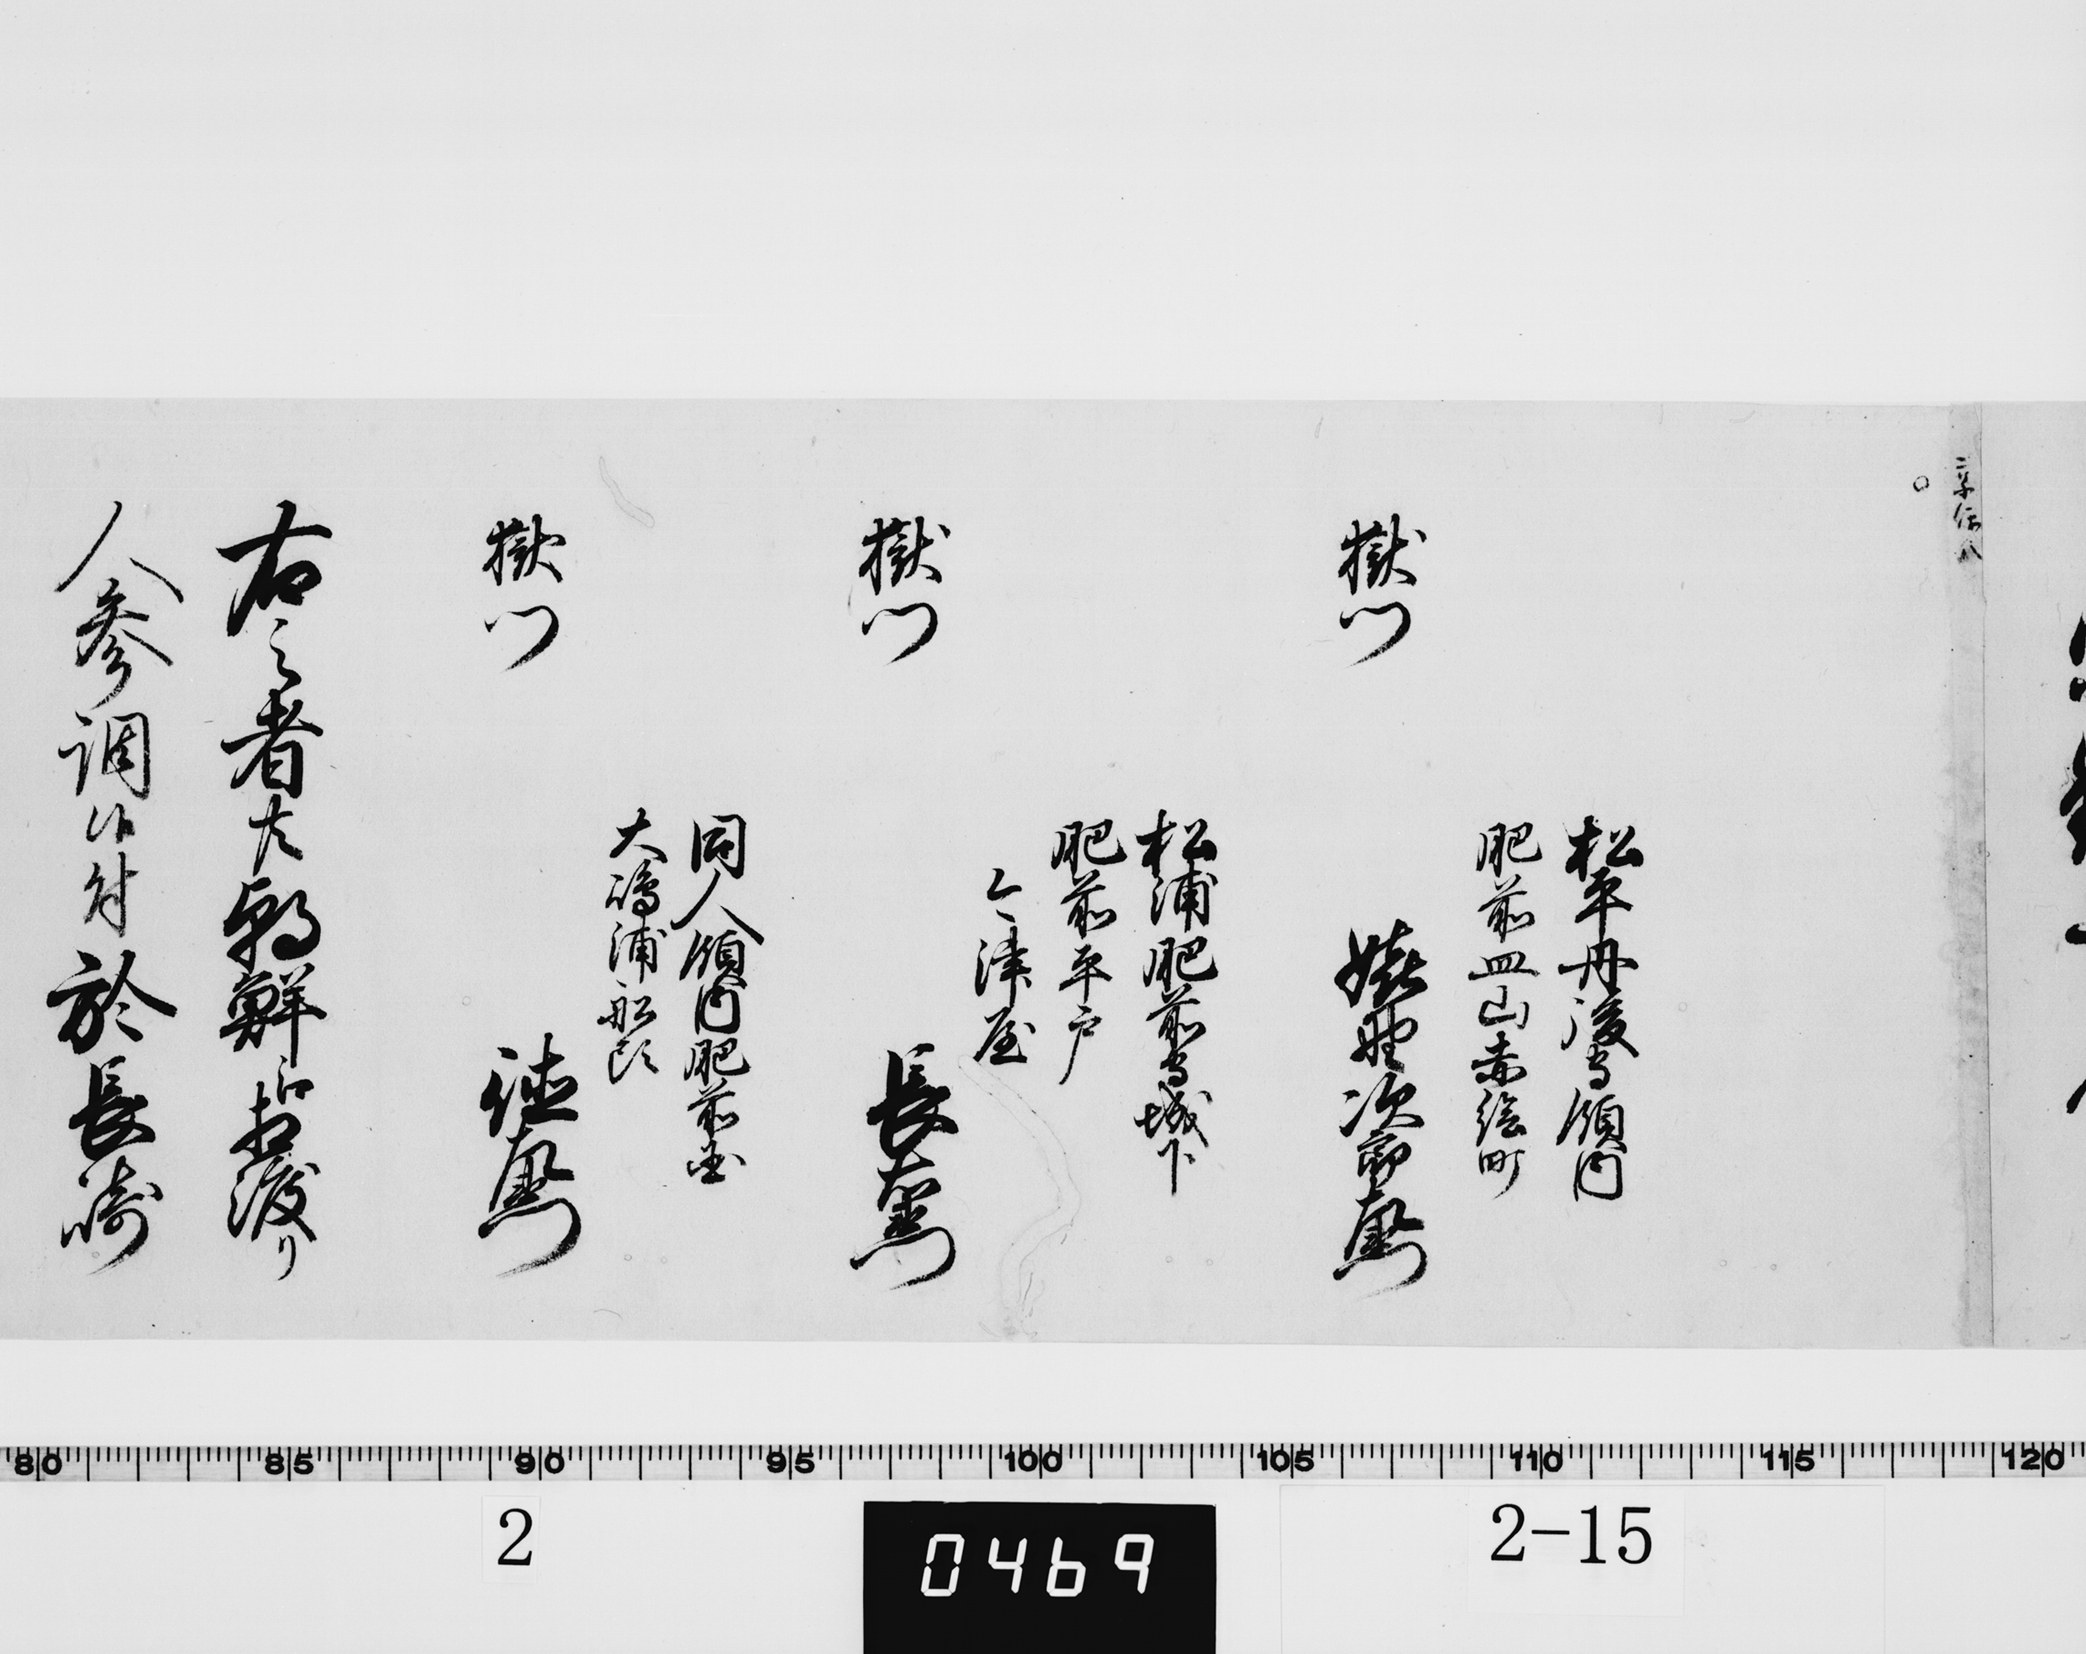 松平丹後守領内
肥前皿山赤絵町
嬉野次郎左衛門
獄門
松浦肥前守城下
肥前平戸
今津屋
長左衛門
獄門
同人領内肥前国
大嶋浦船頭
徳左衛門
獄門
右之者共朝鮮江相渡り
人参調候付於長崎
80 85 90 95 100 105 110 115 120
2
0469
2-15